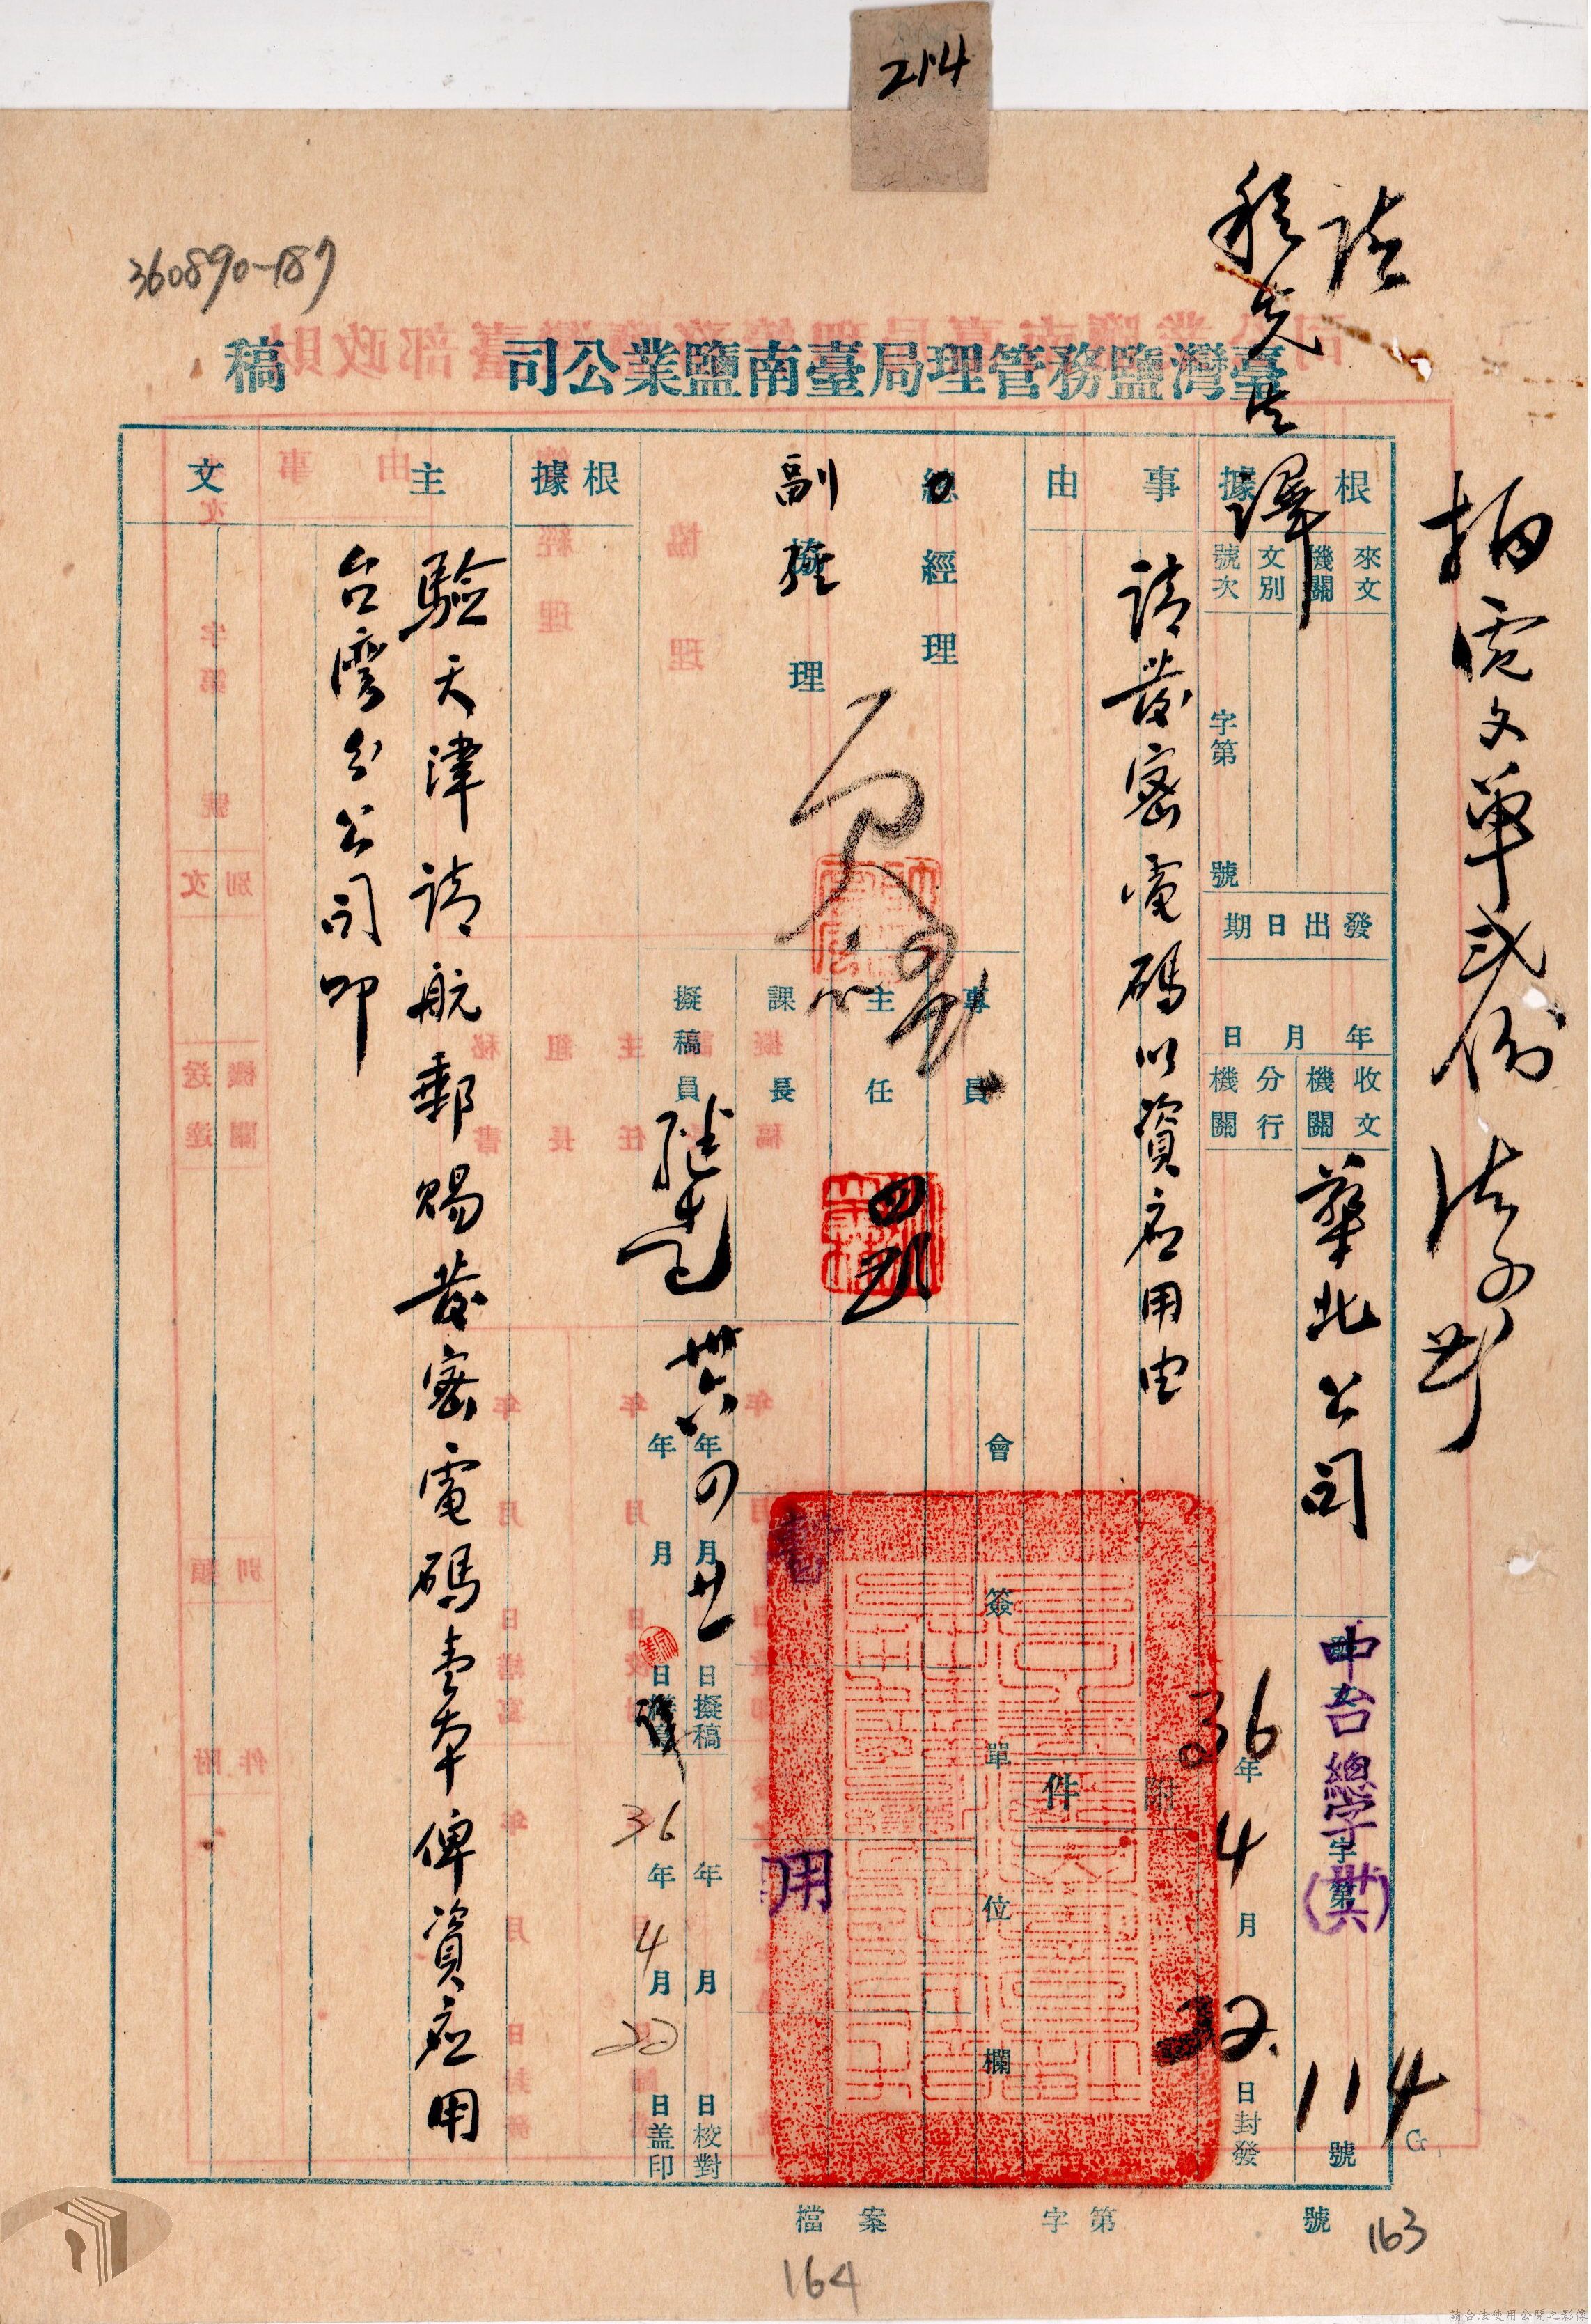 214
360890-187
請
先生
譯
拍電文單弐份
臺灣鹽務管理局臺南鹽業公司 稿
根據
來文機關
文別
號次
字第 號
發出日期
年月日
收文機關
華北公司
分行機關
申台總字(卅六)
字第
114
號
36年4月22日封發
事由
請發密電碼以資應用由
附件
總經理
協理
副經
會簽單位欄
專員
主任
課長
擬稿員
卅六年四月廿一日擬稿
年 月 日繕寫
年 月 日校對
36年4月22日蓋印
用
根據
主文
驗天津請航郵賜發密電碼壹本俾資應用
台灣分公司叩
檔案 字第 號
163
164
請合法使用公開之影像